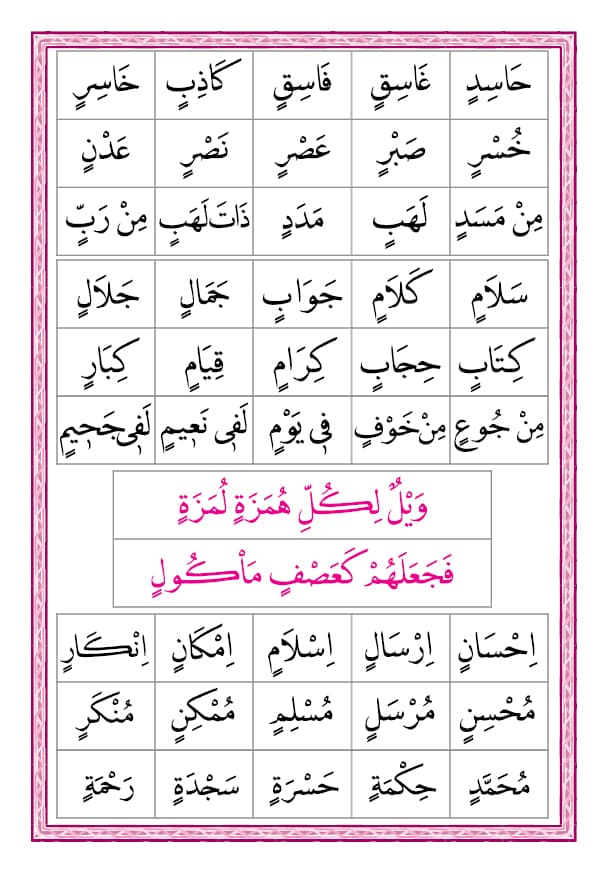 حَاسِدٍ غَاسِقٍ فَاسِقٍ كَاذِبٍ خَاسِرٍ
خُسْرٍ صَبْرٍ عَصْرٍ نَصْرٍ عَدْنٍ
مِنْ مَسَدٍ لَهَبٍ مَدَدٍ ذَاتَ لَهَبٍ مِنْ رَبٍّ
سَلَامٍ كَلَامٍ جَوَابٍ جَمَالٍ جَلَالٍ
كِتَابٍ حِجَابٍ كِرَامٍ قِيَامٍ كِبَارٍ
مِنْ جُوعٍ مِنْ خَوْفٍ فٖى يَوْمٍ لَفٖى نَعٖيمٍ لَفٖى جَحٖيمٍ
وَيْلٌ لِكُلِّ هُمَزَةٍ لُمَزَةٍ
فَجَعَلَهُمْ كَعَصْفٍ مَاْكُولٍ
اِحْسَانٍ اِرْسَالٍ اِسْلَامٍ اِمْكَانٍ اِنْكَارٍ
مُحْسِنٍ مُرْسَلٍ مُسْلِمٍ مُمْكِنٍ مُنْكَرٍ
مُحَمَّدٍ حِكْمَةٍ حَسْرَةٍ سَجْدَةٍ رَحْمَةٍ